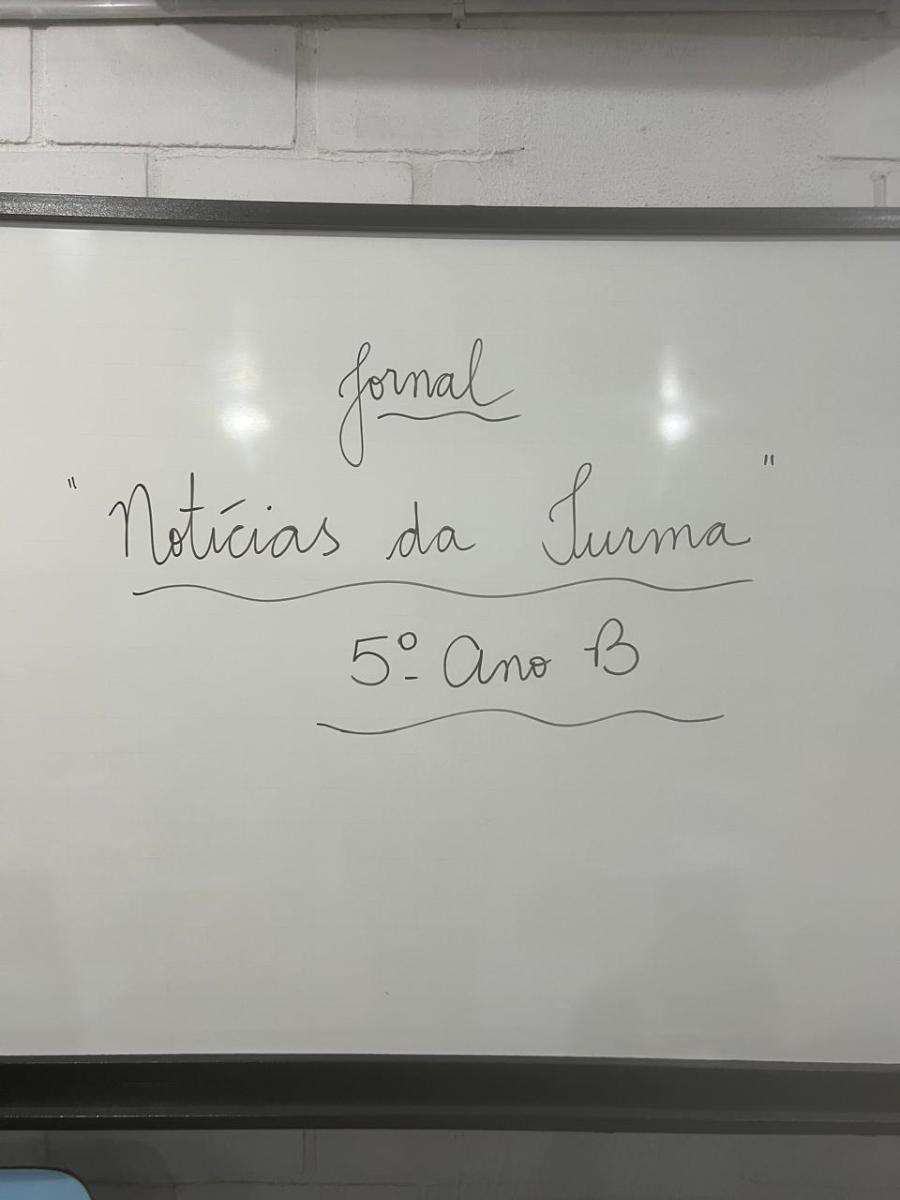 Jornal
"Notícias da Turma"
5º Ano B